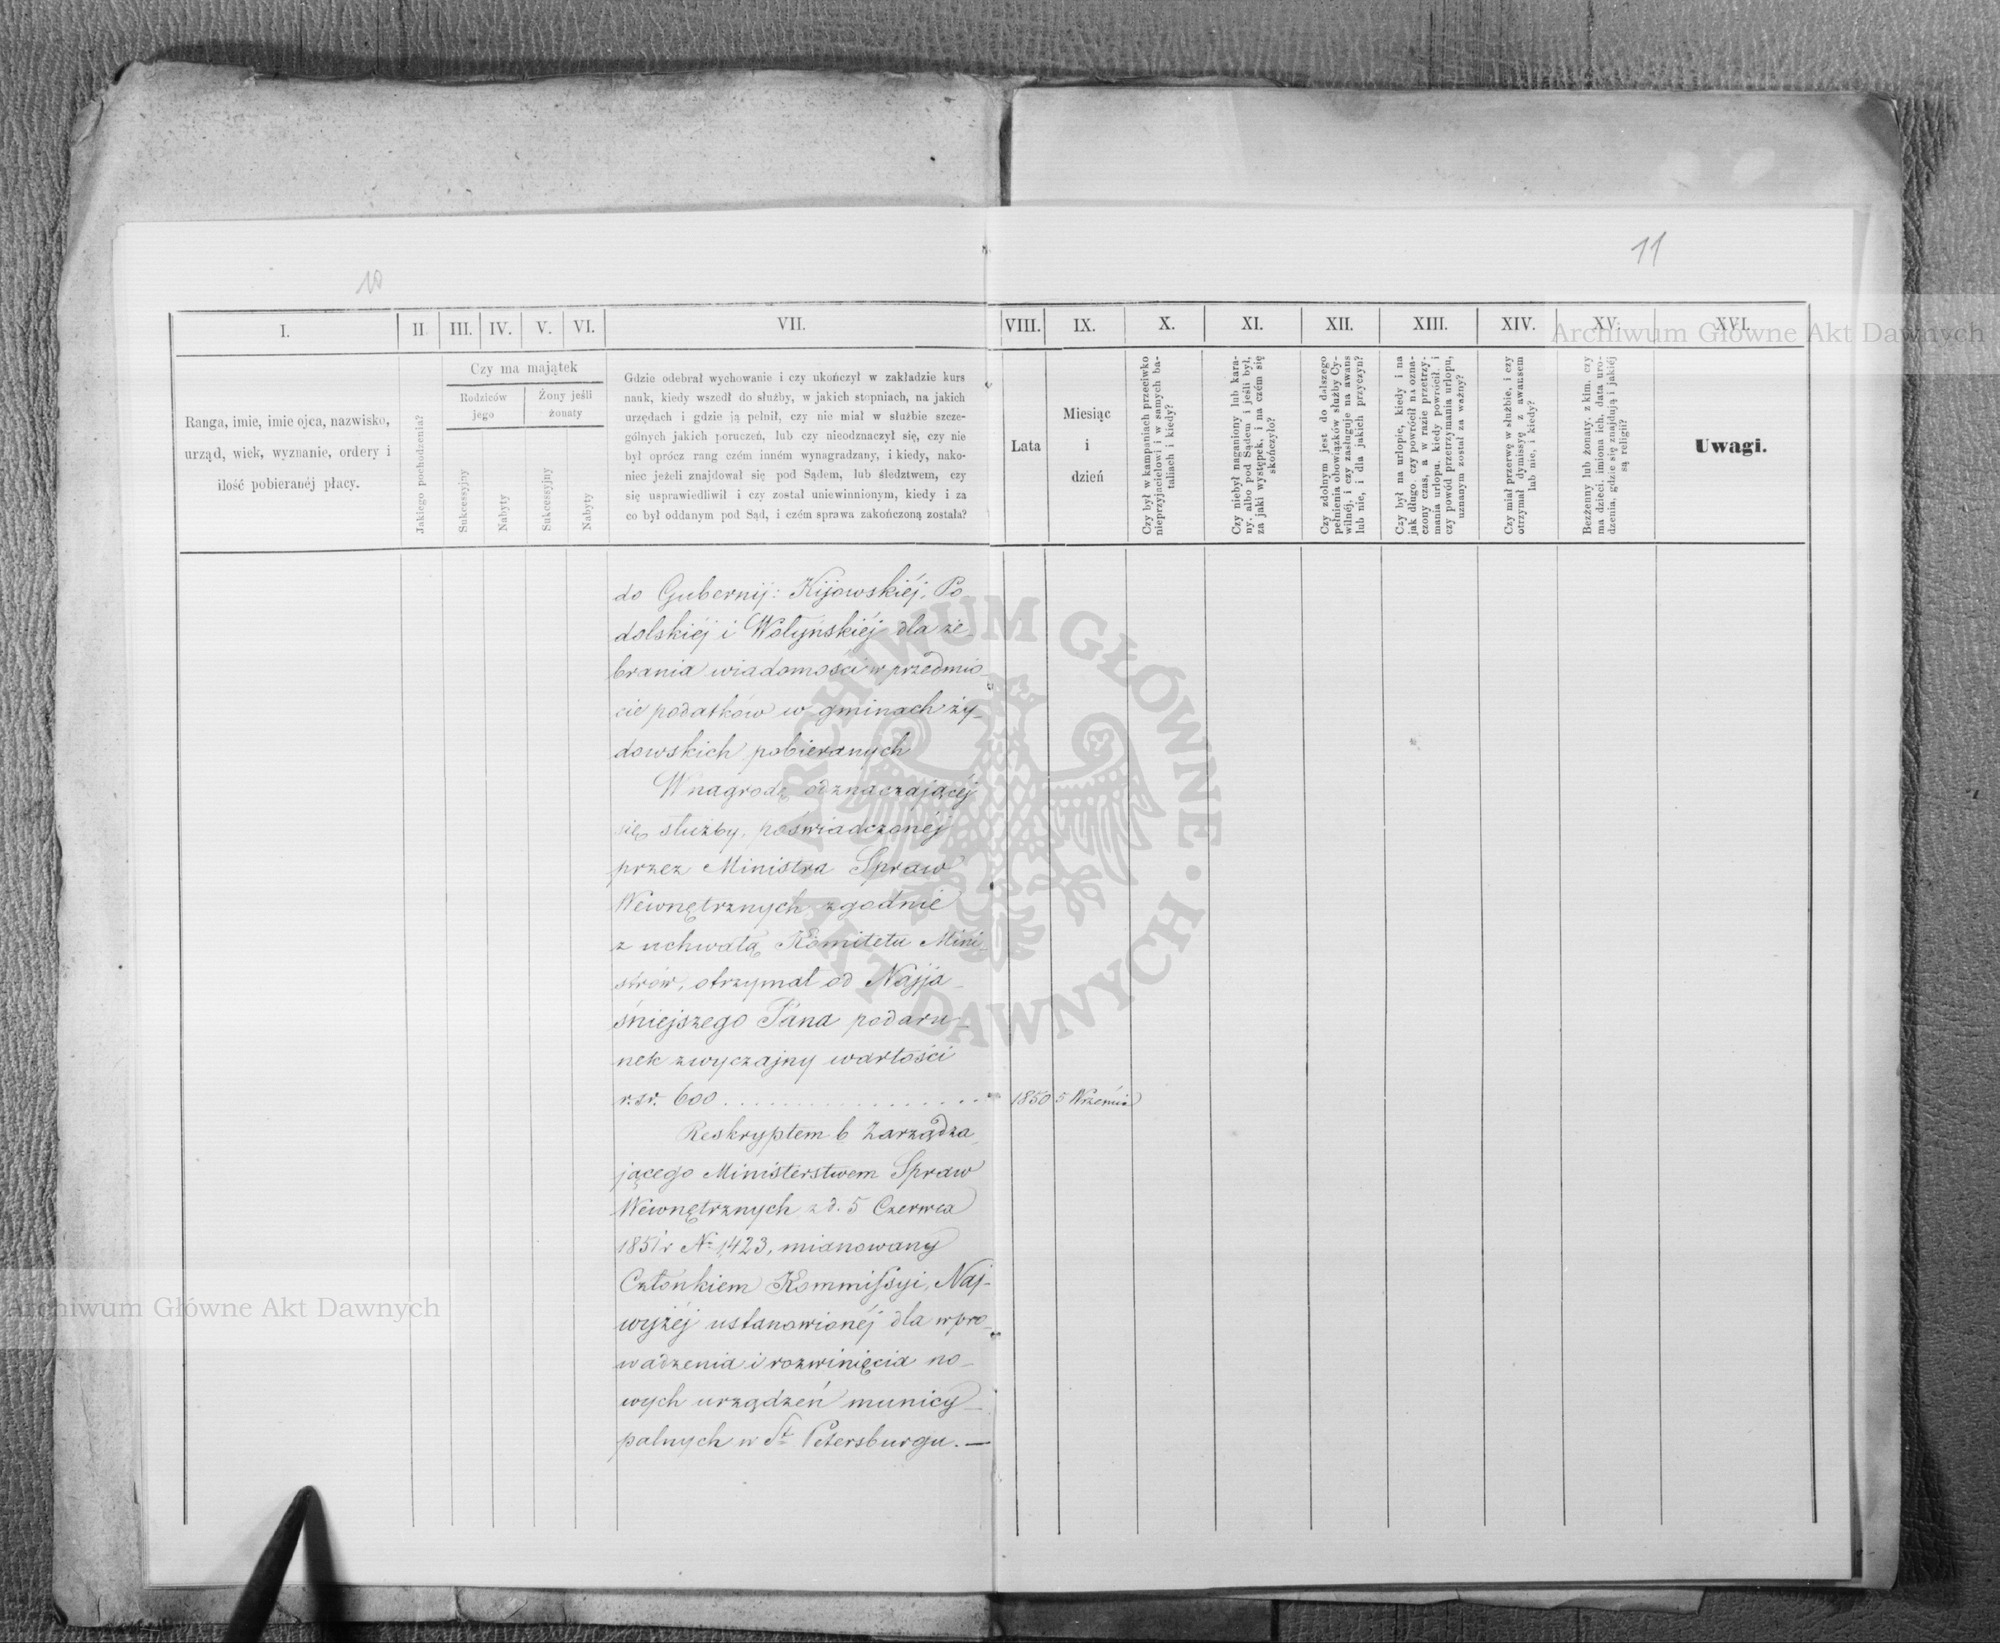 10
11
I.
II.
III.
IV.
V.
VI.
VII.
VIII.
IX.
X.
XI.
XII.
XIII.
XIV.
XV.
XVI.
Ranga, imie, imie ojca, nazwisko,
urząd, wiek, wyznanie, ordery i
ilość pobieranéj płacy.
Jakiego pochodzenia?
Czy ma majątek
Rodziców
jego
Żony jeśli
żonaty
Sukcessyjny
Nabyty
Sukcessyjny
Nabyty
Gdzie odebrał wychowanie i czy ukończył w zakładzie kurs
nauk, kiedy wszedł do służby, w jakich stopniach, na jakich
urzędach i gdzie ją pełnił, czy nie miał w służbie szcze-
gólnych jakich poruczeń, lub czy nieodznaczył się, czy nie
był oprócz rang czém inném wynagradzany, i kiedy, nako-
niec jeżeli znajdował się pod Sądem, lub śledztwem, czy
się usprawiedliwił i czy został uniewinnionym, kiedy i za
co był oddanym pod Sąd, i czém sprawa zakończoną została?
Lata
Miesiąc
i
dzień
Czy był w kampaniach przeciwko
nieprzyjacielowi i w samych ba-
taliach i kiedy?
Czy niebył naganiony lub kara-
ny, albo pod Sądem i jeśli był,
za jaki występek, i na czém się
skończyło?
Czy zdolnym jest do dalszego
pełnienia obowiązków służby Cy-
wilnéj, i czy zasługuje na awans
lub nie, i dla jakich przyczyn?
Czy był na urlopie, kiedy i na
jak długo, czy powrócił na ozna-
czony czas, a w razie przetrzy-
mania urlopu, kiedy powrócił, i
czy powód przetrzymania urlopu,
uznanym został za ważny?
Czy miał przerwę w służbie, i czy
otrzymał dymissyę z awansem
lub nie, i kiedy?
Bezżenny lub żonaty, z kim, czy
ma dzieci, imiona ich, data uro-
dzenia, gdzie się znajdują i jakiéj
są religii?
Uwagi.
do Gubernij: Kijowskiéj, Po
dolskiéj i Wołyńskiéj dla ze-
brania wiadomości w przedmio-
cie podatków w gminach ży-
dowskich pobieranych
W nagrodę odznaczającéj
się służby, poświadczonéj
przez Ministra Spraw
Wewnętrznych, zgodnie
z uchwałą Komitetu Mini-
strów, otrzymał od Najja-
śniejszego Pana podaru-
nek zwyczajny wartości
r.sr. 600 . . . . . . . . . . . . . . . . 1850 5 Wrześnía
Reskryptem b Zarządza
jącego Ministerstwem Spraw
Wewnętrznych z d. 5 Czerwca
1851 r No 1423, mianowany
Członkiem Kommissyi, Naj-
wyżéj ustanowionéj dla wpro-
wadzenia i rozwinięcia no-
wych urządzeń municy-
palnych w St Petersburgu. —
ARCHIWUM GŁÓWNE · AKT DAWNYCH ·
Archiwum Główne Akt Dawnych
Archiwum Główne Akt Dawnych